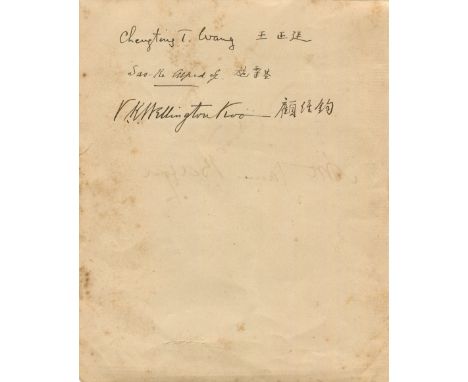 Chengting T. Wang 王正廷
Sao-Ke Alfred Sze 施肇基
V. K. Wellington Koo 顧維鈞